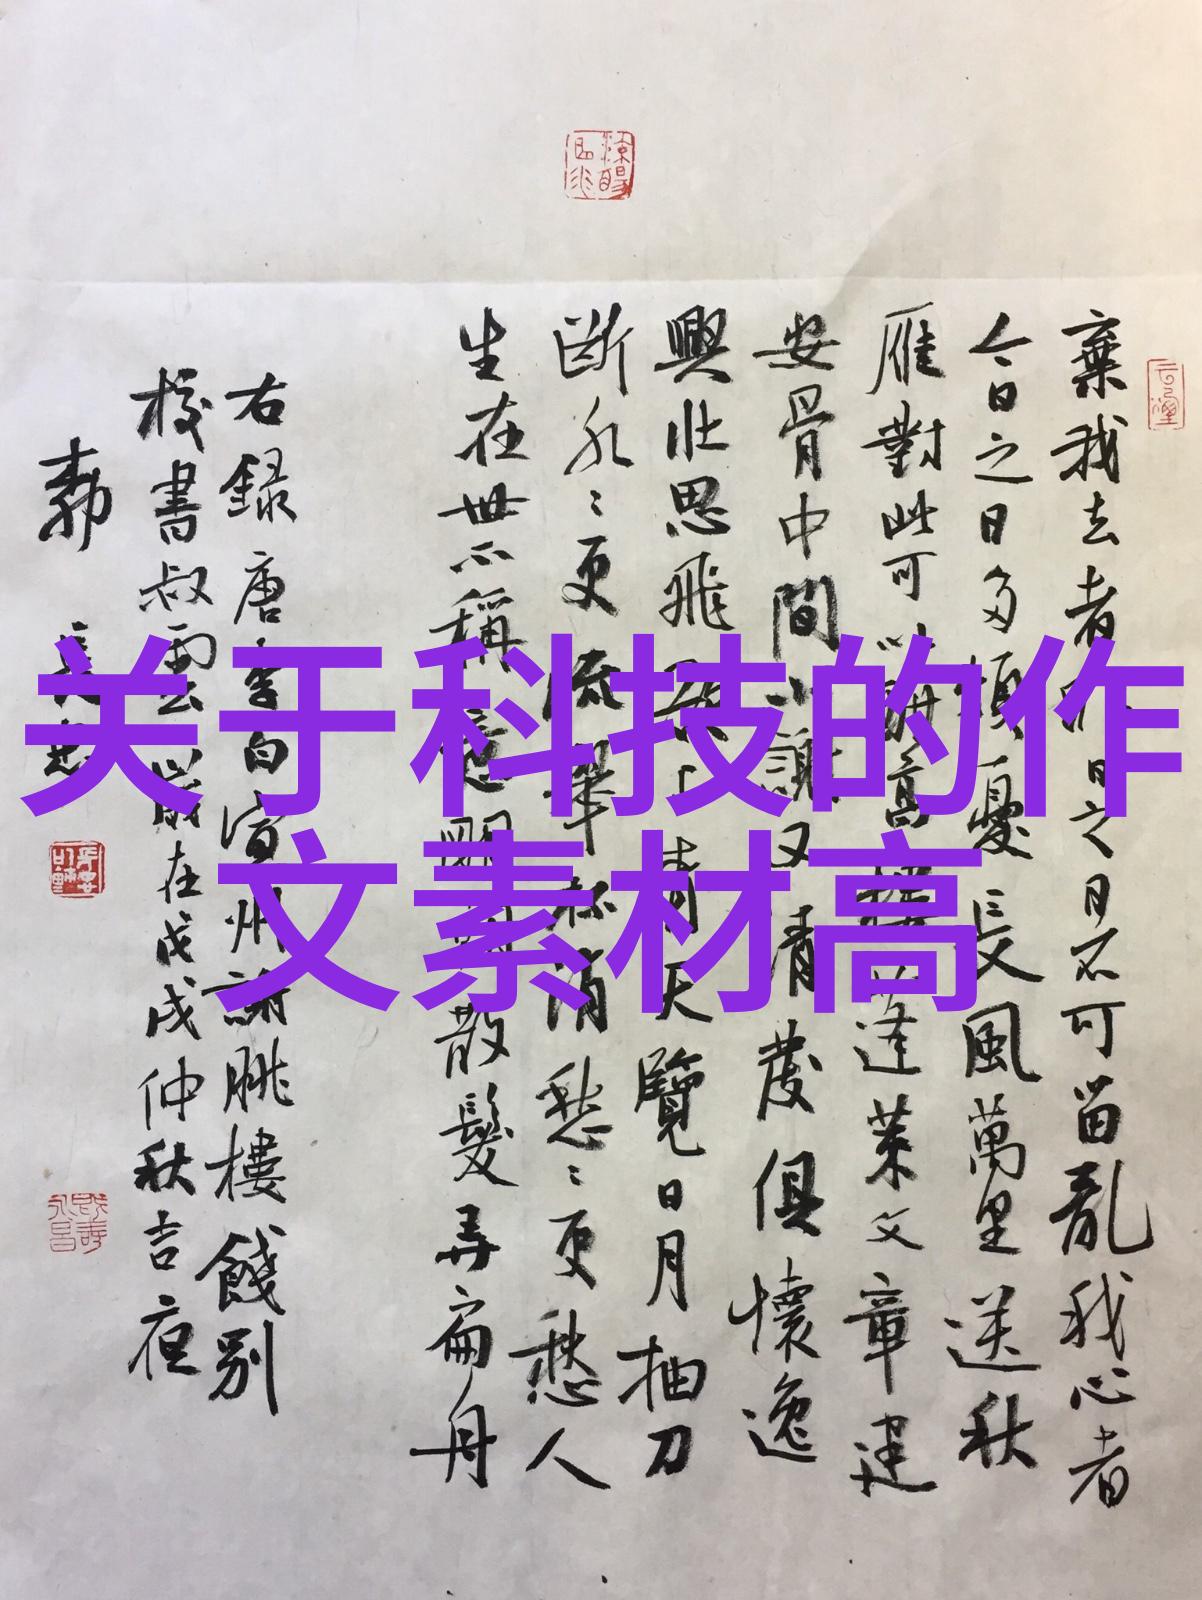 关于科技的作
文素材高
棄我去者昨日之日不可留亂我心者
今日之日多煩憂長風萬里送秋
雁對此可以酣高樓蓬萊文章建
安骨中間小謝又清發俱懷逸
興壯思飛欲上青天覽日月抽刀
斷水〻更流舉杯消愁〻更愁人
生在世不稱意明朝散髮弄扁舟
右録唐李白宣州謝朓樓餞別
校書叔雲歲在戊戌仲秋吉夜